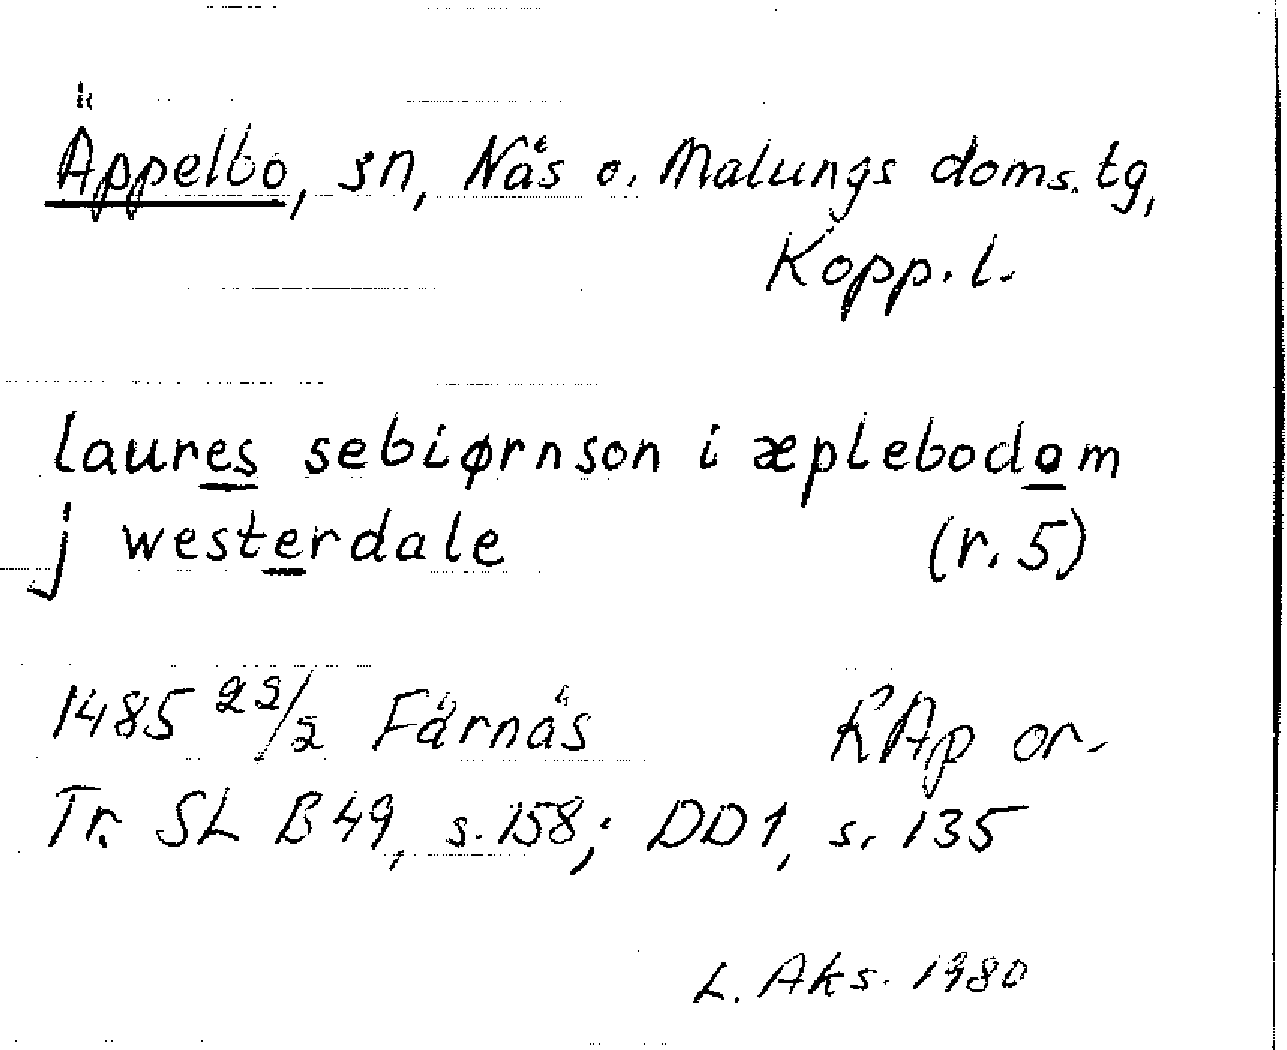 Äppelbo, sn, Nås o. Malungs doms. tg,
Kopp. l.
laures sebiørnson i æplebodom
j westerdale (r. 5)
1485 22/2 Färnäs RAp or.
Tr. SL B 49, s. 158; DD 1, s. 135
L. Aks. 1980